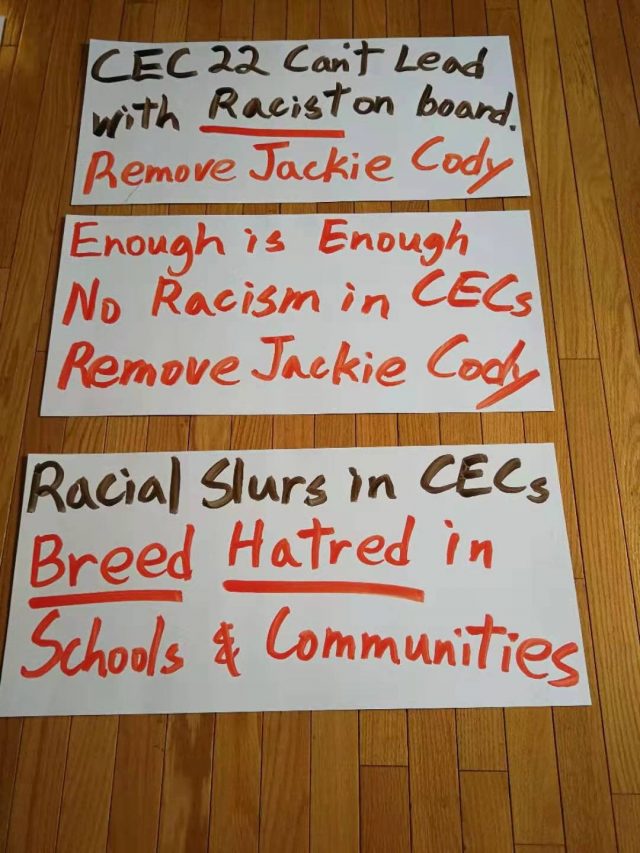 CEC 22 Can't Lead
with Racist on board.
Remove Jackie Cody
Enough is Enough
No Racism in CECs
Remove Jackie Cody
Racial Slurs in CECs
Breed Hatred in
Schools & Communities